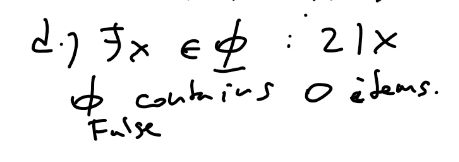 d.) ∃x ∈ ϕ : 2|x
ϕ contains 0 items.
False